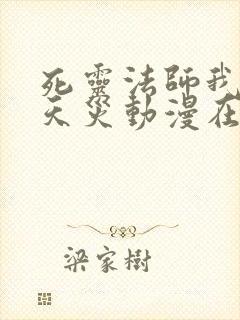 死靈法師我
天災動漫在
梁家樹